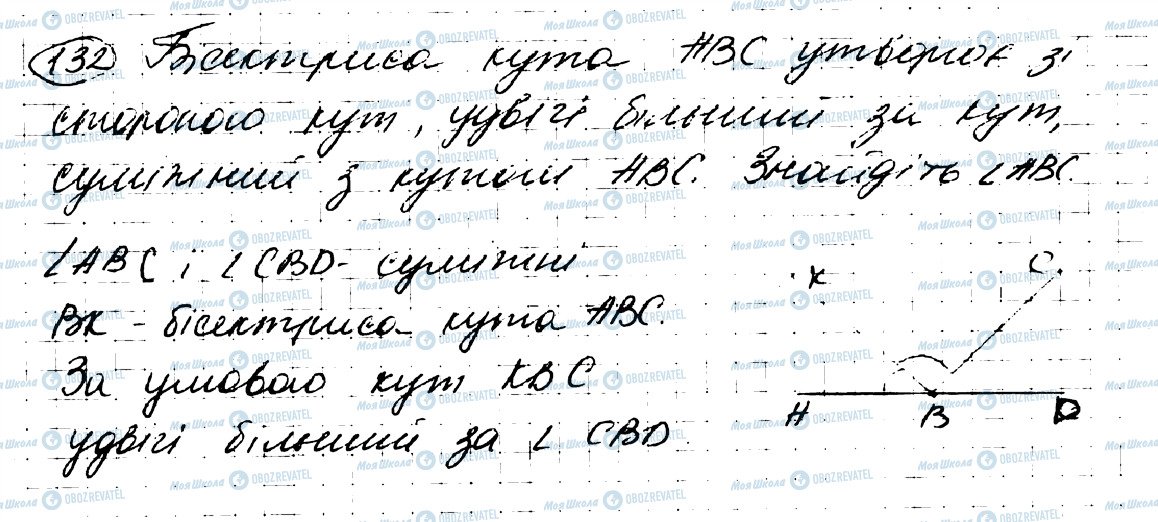 132 Бісектриса кута ABC утворює зі
стороною кут, удвічі більший за кут,
суміжний з кутом ABC. Знайдіть ∠ABC.
∠ABC і ∠CBD - суміжні
BK - бісектриса кута ABC.
За умовою кут KBC
удвічі більший за ∠CBD
K C
A B D